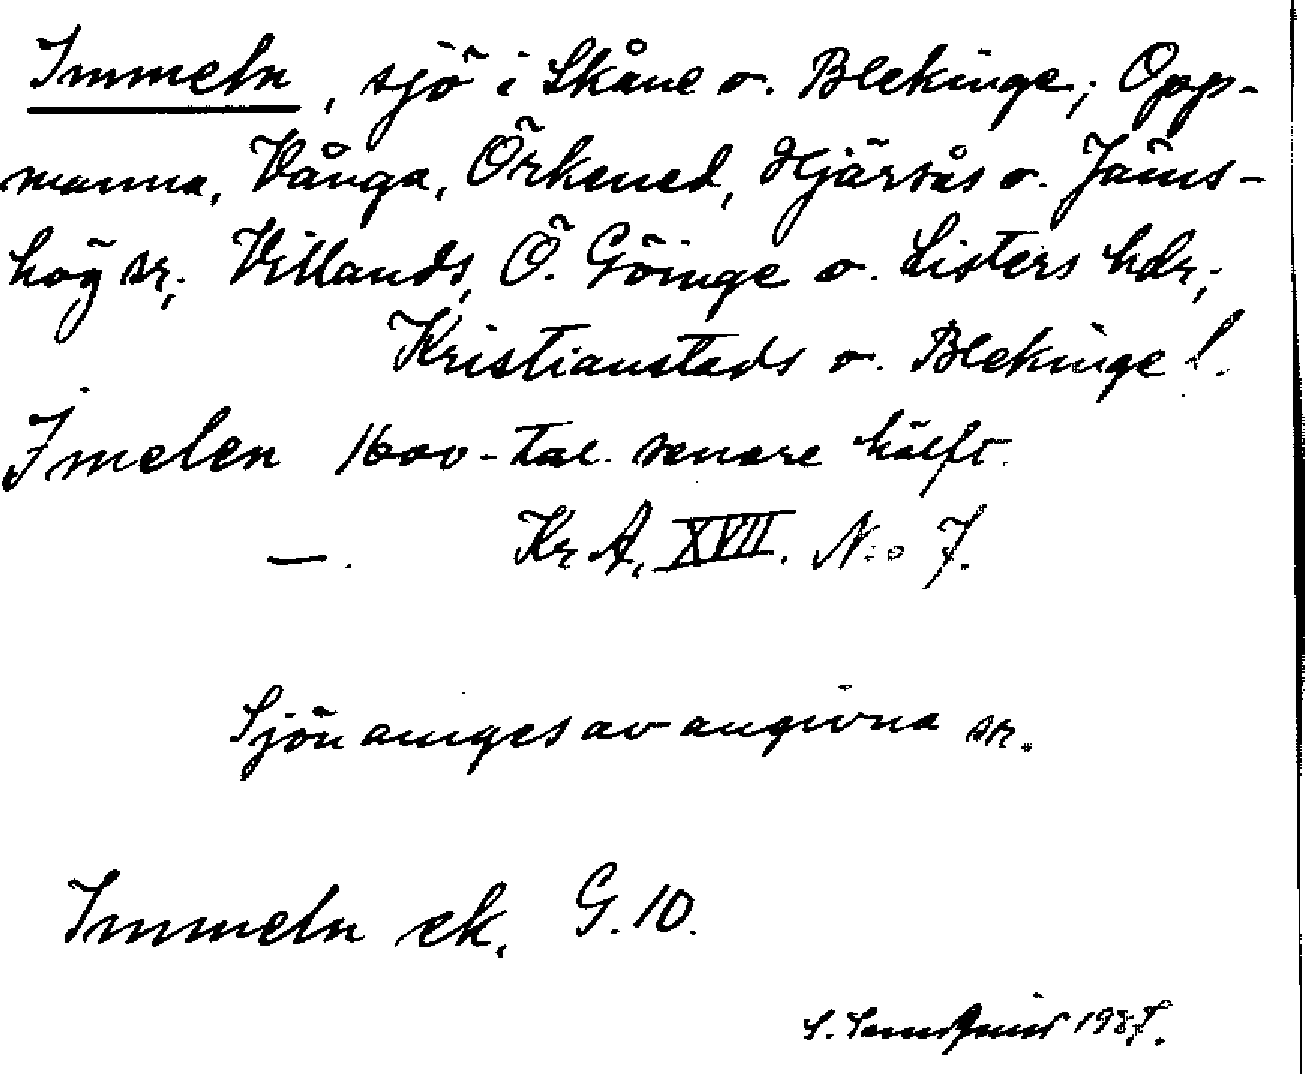 Immeln, sjö i Skåne o. Blekinge; Opp-
manna, Vånga, Örkened, Hjärsås o. Jäms-
hög sr; Villands, Ö. Göinge o. Listers hdr;
Kristianstads o. Blekinge l.
Imelen 1600-tal. senare hälft.
—. KrA, XVII. N:o 7.
Sjön omges av angivna sr.
Immeln ek. G. 10.
1937.